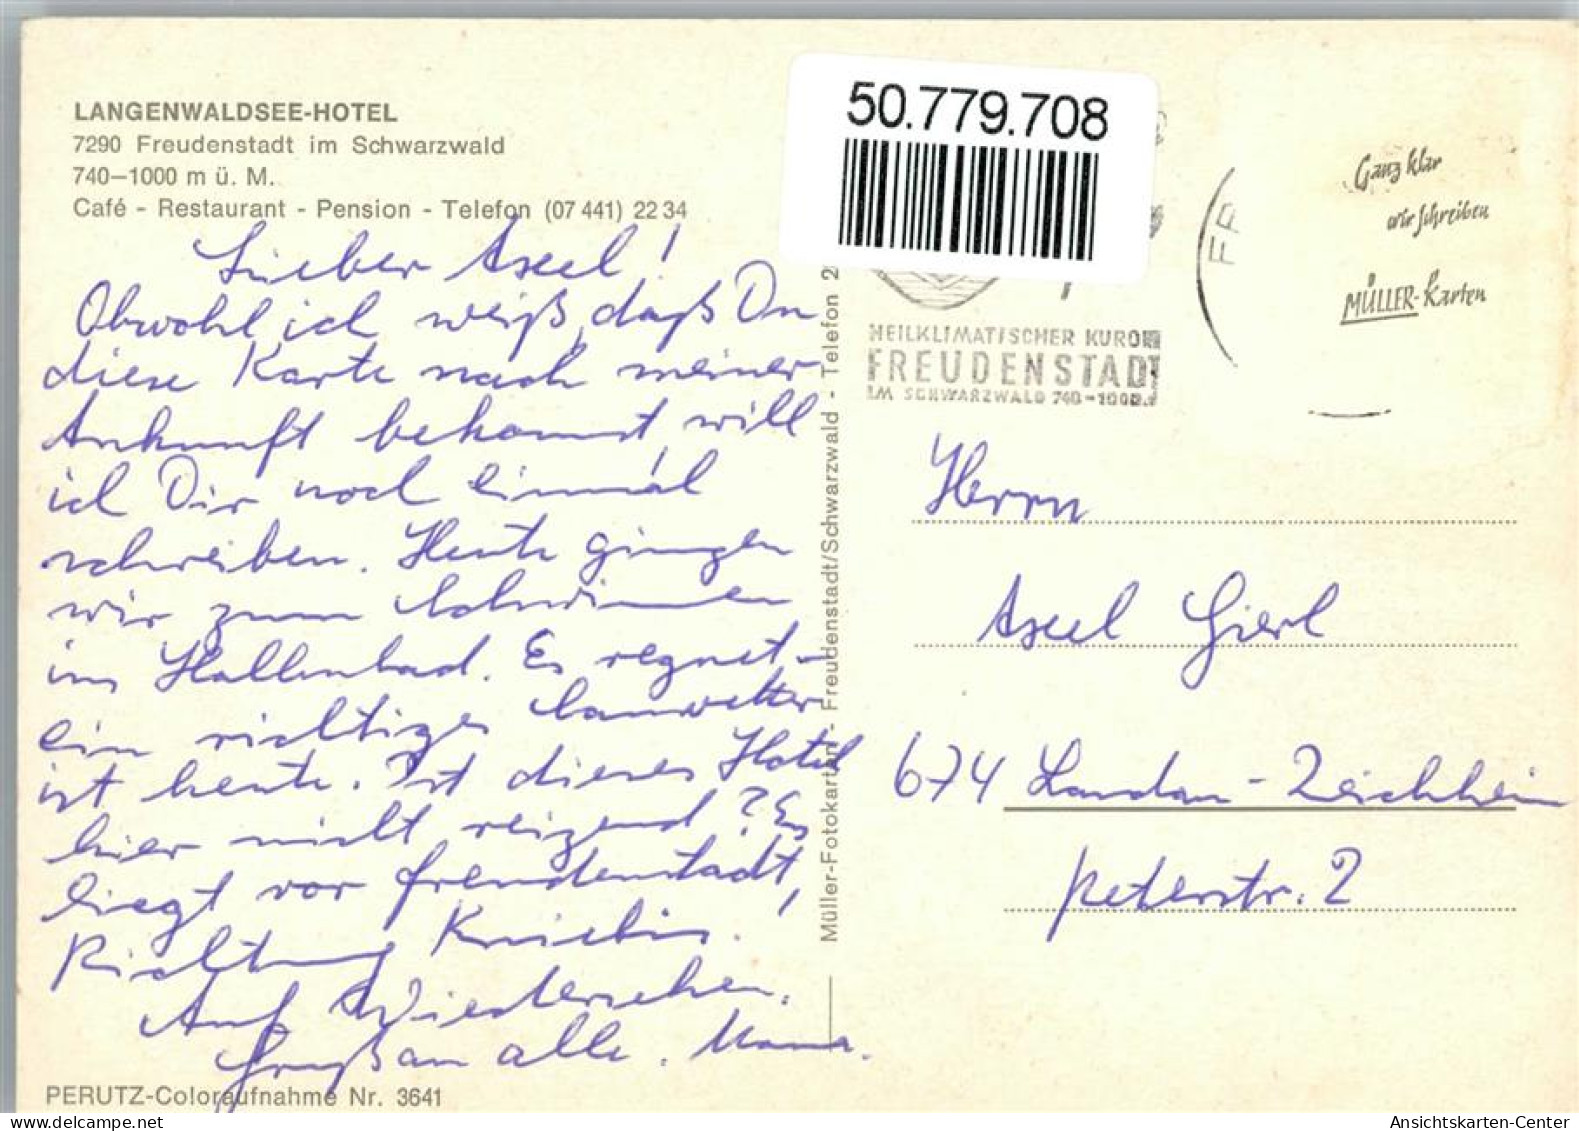 LANGENWALDSEE-HOTEL
7290 Freudenstadt im Schwarzwald
740–1000 m ü. M.
Café - Restaurant - Pension - Telefon (07 441) 22 34
Lieber Axel!
Obwohl ich weiß, daß Du
diese Karte nach meiner
Ankunft bekommst, will
ich Dir noch einmal
schreiben. Heute gingen
wir zum Schwimmen
ins Hallenbad. Es regnet -
ein richtiges Sauwetter
ist heute. Ist dieses Hotel
hier nicht reizend? Es
liegt vor Freudenstadt,
Richtung Kniebis.
Auf Wiedersehen.
Gruß an alle. Mama.
PERUTZ-Coloraufnahme Nr. 3641
Müller-Fotokarten - Freudenstadt/Schwarzwald - Telefon 2
50.779.708
HEILKLIMATISCHER KURO
FREUDENSTADT
IM SCHWARZWALD 740-1000
FR
Ganz klar
wir schreiben
MÜLLER-Karten
Herrn
Axel Gierl
674 Landau-Zeichheim
Peterstr. 2
Ansichtskarten-Center